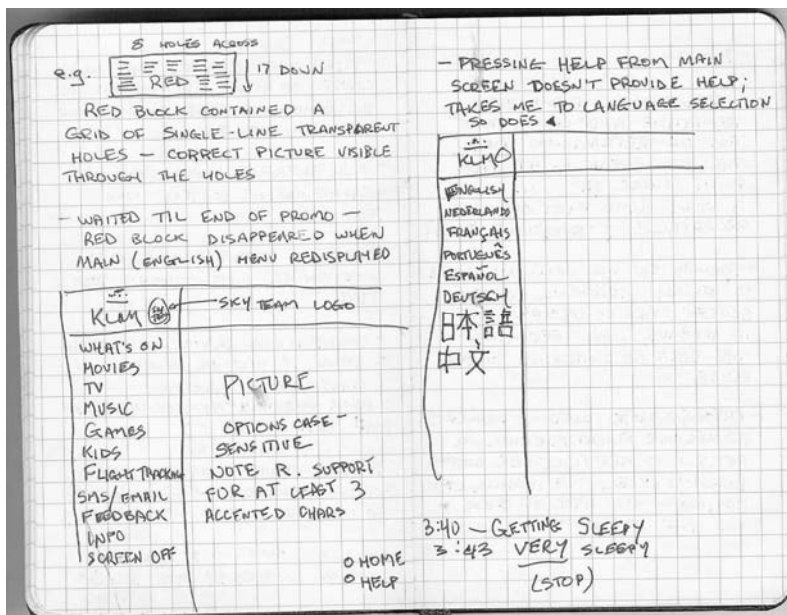 8 HOLES ACROSS
e.g.
RED
17 DOWN
RED BLOCK CONTAINED A
GRID OF SINGLE-LINE TRANSPARENT
HOLES – CORRECT PICTURE VISIBLE
THROUGH THE HOLES
– WAITED TIL END OF PROMO –
RED BLOCK DISAPPEARED WHEN
MAIN (ENGLISH) MENU REDISPLAYED
KLM
SKY TEAM LOGO
WHAT'S ON
MOVIES
TV
MUSIC
GAMES
KIDS
FLIGHT TRACKING
SMS/EMAIL
FEEDBACK
INFO
SCREEN OFF
PICTURE
OPTIONS CASE-
SENSITIVE
NOTE R. SUPPORT
FOR AT LEAST 3
ACCENTED CHARS
O HOME
O HELP
– PRESSING HELP FROM MAIN
SCREEN DOESN'T PROVIDE HELP;
TAKES ME TO LANGUAGE SELECTION
SO DOES
KLM
ENGLISH
NEDERLANDS
FRANÇAIS
PORTUGUÊS
ESPAÑOL
DEUTSCH
日本語
中文
3:40 – GETTING SLEEPY
3:43 VERY SLEEPY
(STOP)